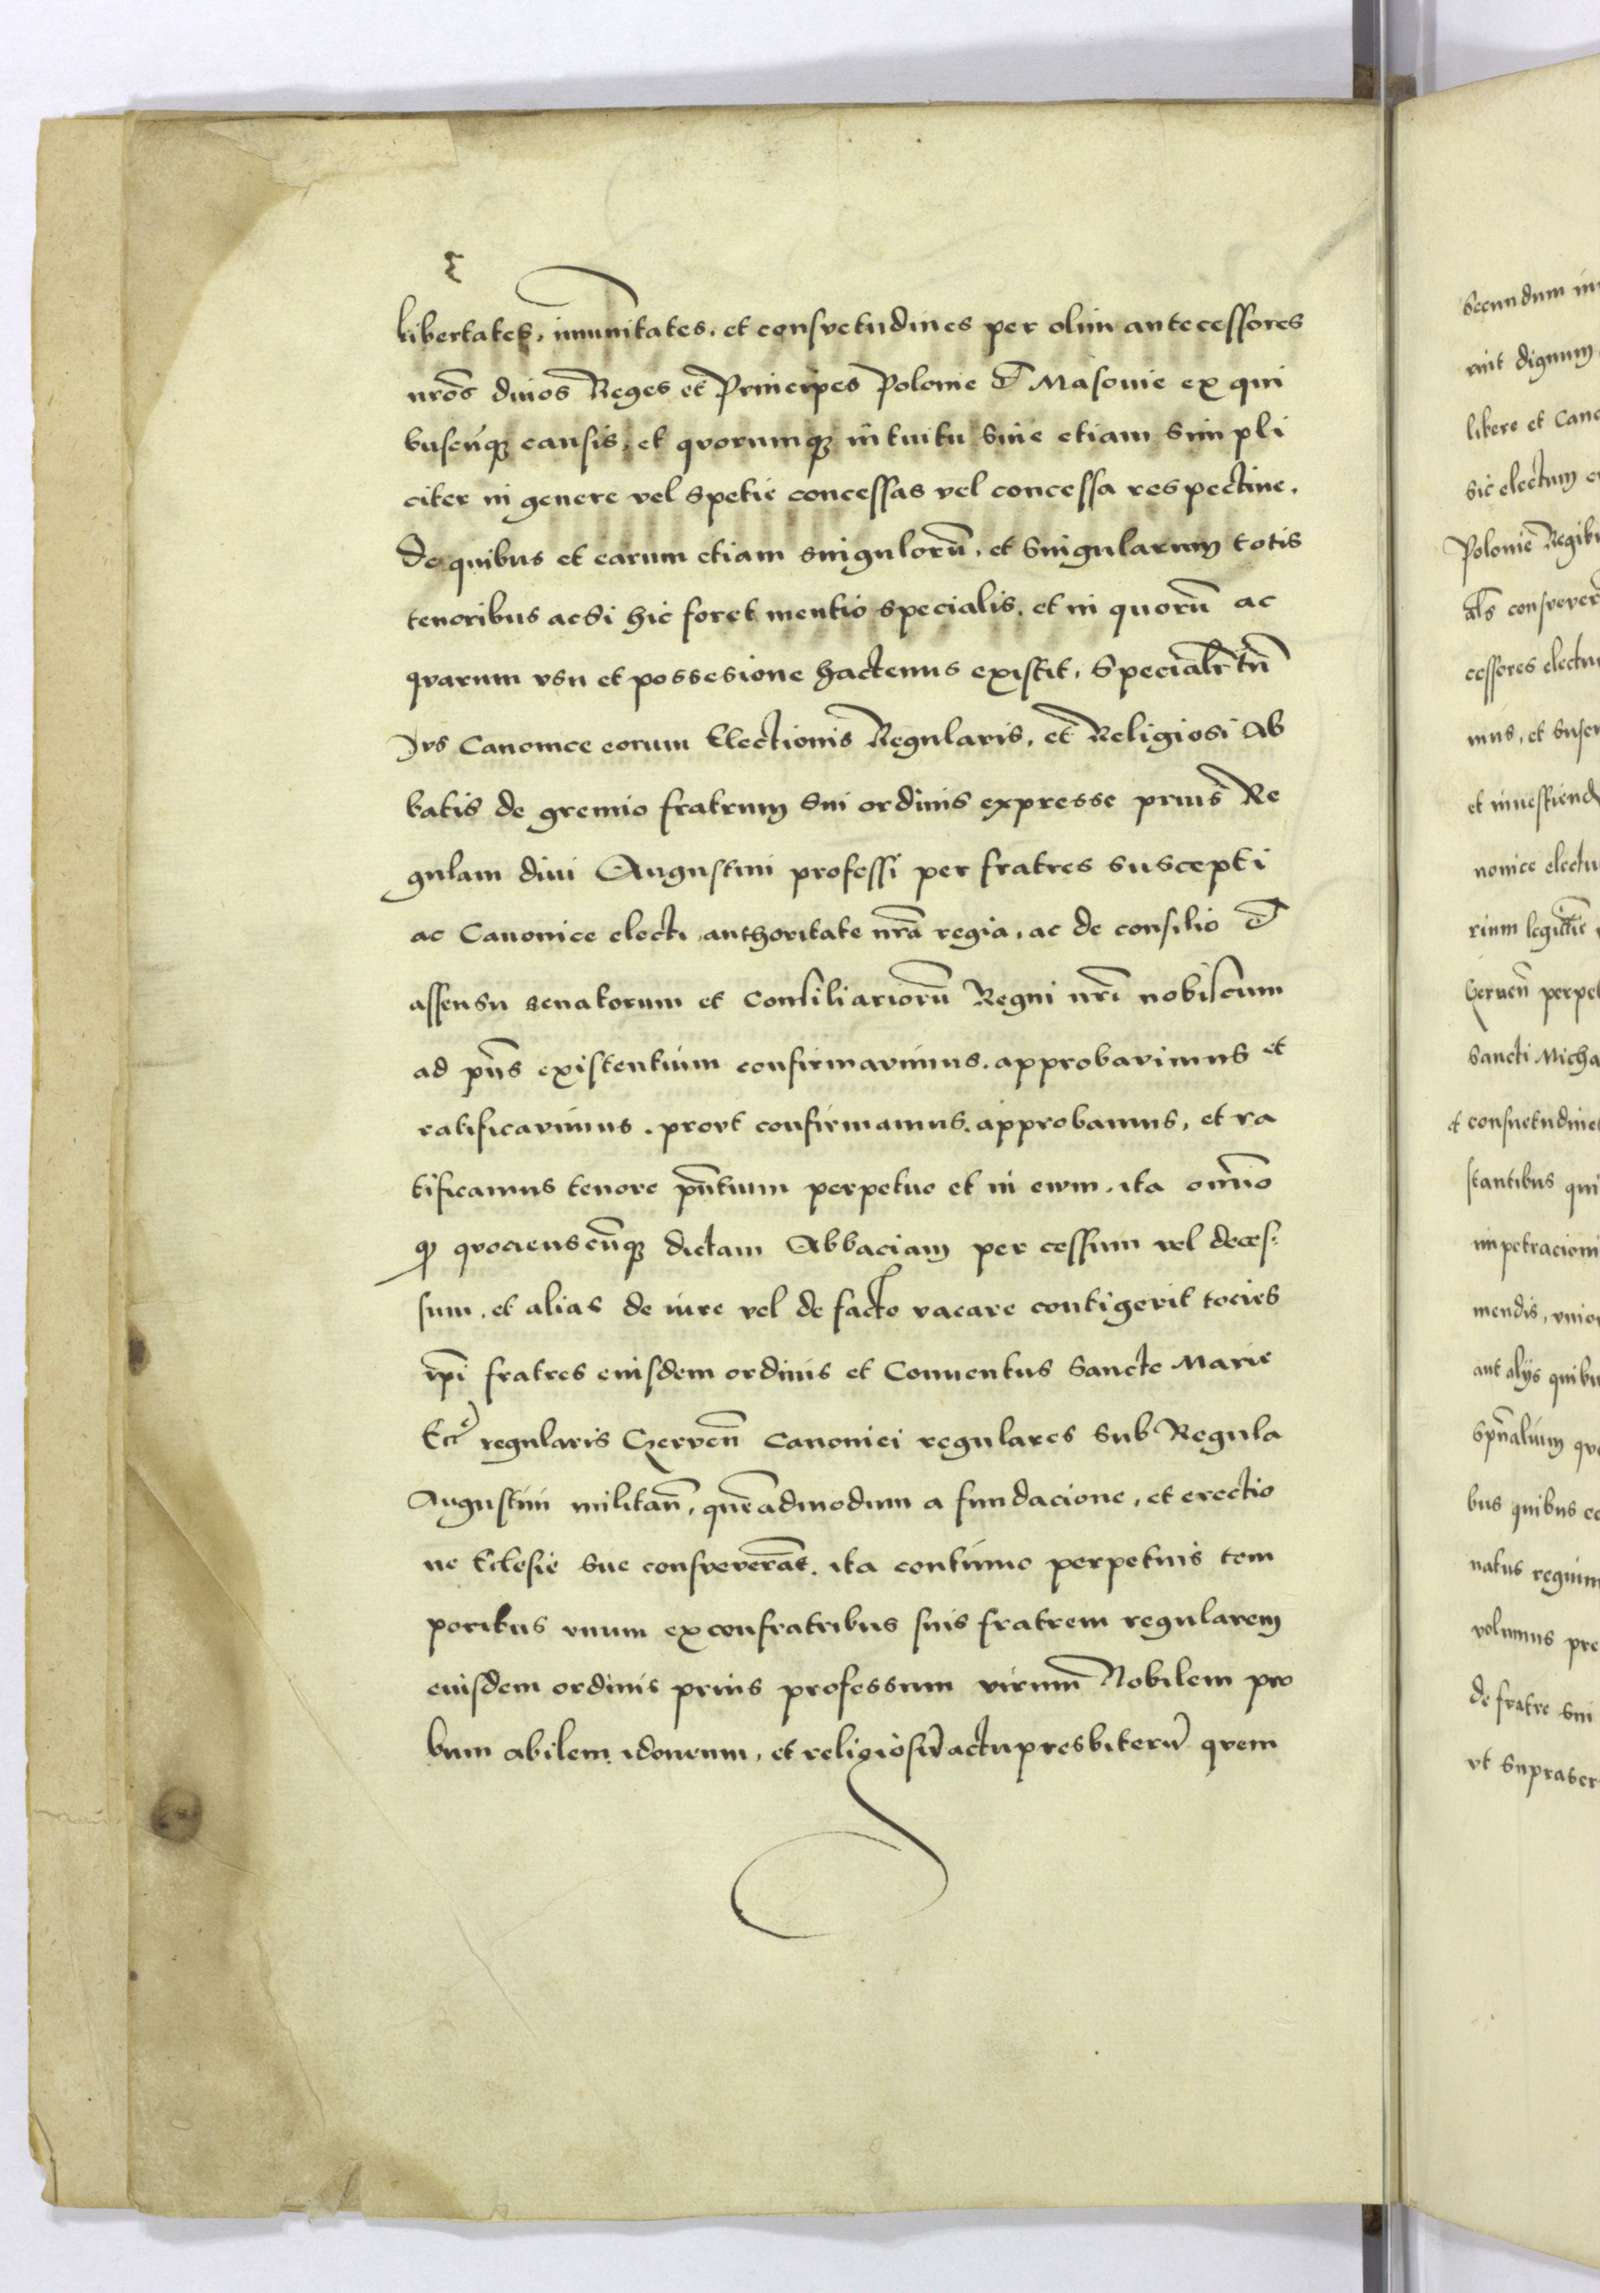 libertates, imunitates, et consvetudines per olim antecessores
nrōs diuos Reges et Principes Polonie et Masouie ex qui
buscūq; causis, et qvorumq; intuitu siue etiam simpli
citer in genere vel spetie concessas vel concessa respectiue,
de quibus et earum etiam singulorū, et singularum totis
tenoribus acsi hic foret mentio specialis, et in quorū ac
qvarum vsu et possesione hactenus existit, specialr̄ tn̄
Jvs Canonice eorum Electionis Regularis, et Religiosi Ab
batis de gremio fratrum sui ordinis expresse prius Re
gulam diui Augustini professi per fratres suscepti
ac Canonice electi authoritate nrā regia, ac de consilio et
assensu senatorum et Consiliariorū Regni nrī nobiscum
ad pn̄s existentium confirmavimus, approbavimus et
ratificavimus, provt confirmamus, approbamus, et ra
tificamus tenore pn̄tium perpetuo et in ewm, ita om̄io
q qvocienscūq; dictam Abbaciam per cessum vel deces
sum, et alias de iure vel de facto vacare contigerit tocies
ip̄i fratres eiusdem ordinis et Conuentus Sancte Marie
Eccē regularis Czervēn Canonici regulares sub Regula
Augustini militan̄, quēadmodum a fundacione, et erectio
ne Ecclesie sue consveverāt, ita continuo perpetuis tem
poribus vnum ex confratribus suis fratrem regularem
eiusdem ordinis prius professum virum Nobilem pro
bum abilem idoneum, et religiosū actu presbiterū qvem
Polonie
libere et
sic electum
cessores
mus, et
Sancti
et
stantibus
mendis,
aut alijs
bus quibus
natus
volumus
de fratre sui
vt